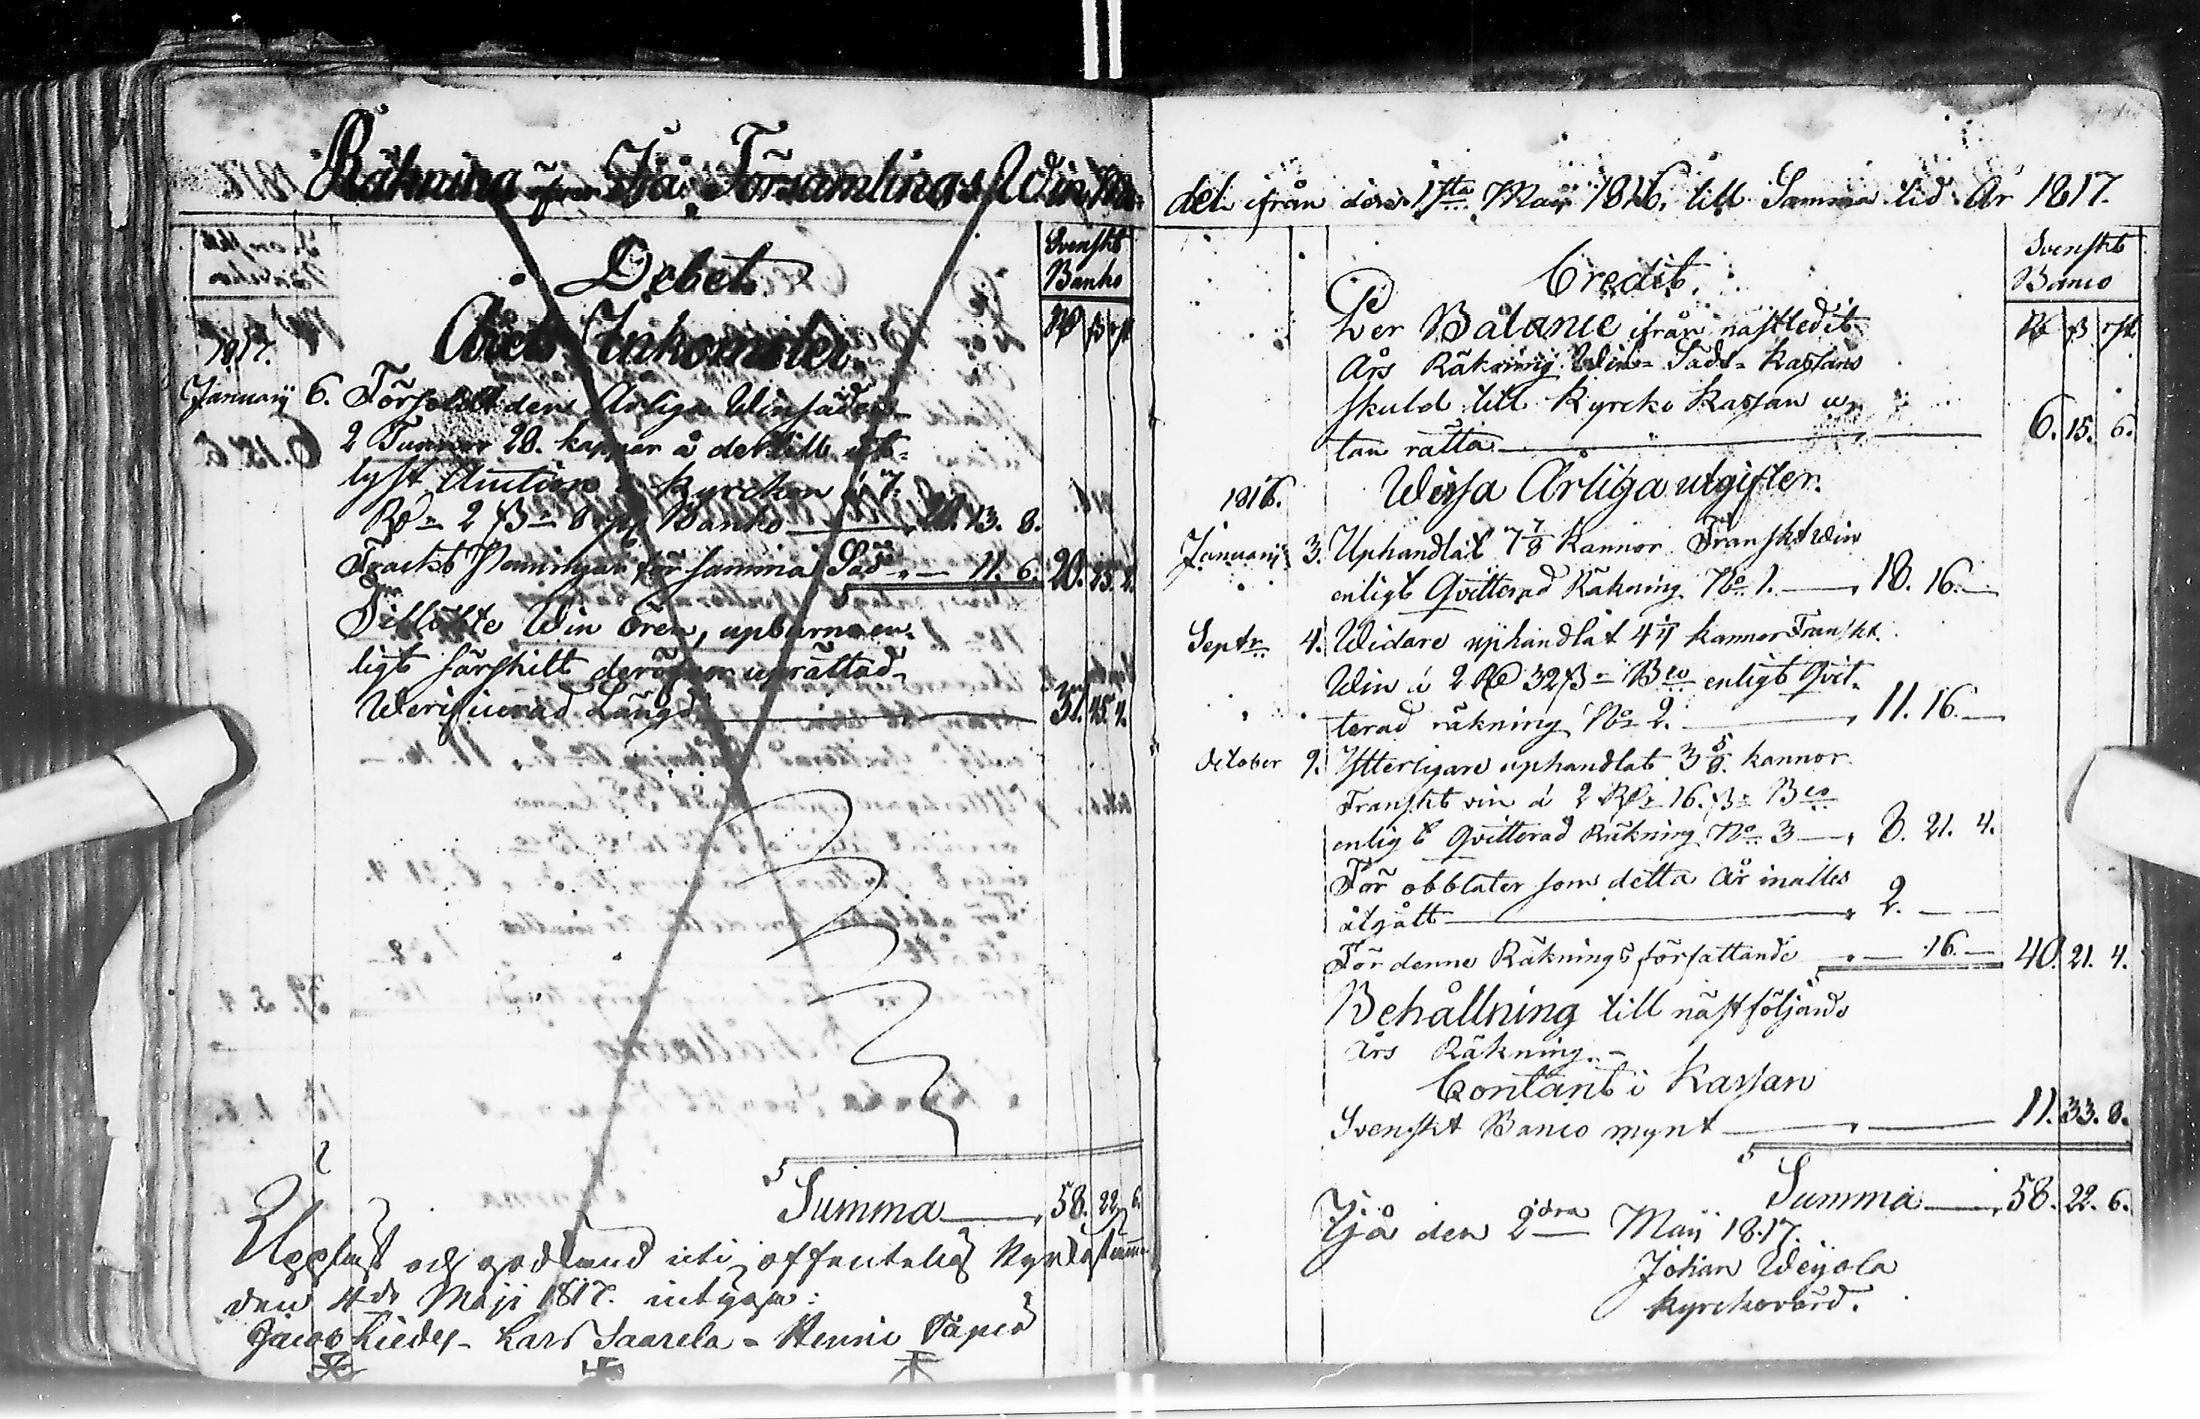 Räkning öfver Ijå Församlings Win Me-
Debet
Svenskt
Banko
Årets Inkomster
Rd ß rst
1817.
Januarij 6. Försåldt den Årliga Winsäden
2 Tunnor 28. kappar å dertill ut-
lyst Auction i Kyrckon á 7.
Rd 2 ß 8 rst Banko 20. 13. 8.
Frackt Penningar för samma Säd " — 11. 6. 20. 25. 2.
Influtne Win Ören, upburne en-
ligt särskilt deröfver uprättad
Verificerad Längd 37. 45. 4.
Summa 58. 22. 6.
Uppläst och godkänd uti offentelig Kyrkostämma
den 4de Maji 1817. intyga:
Jacob Liedes - Lars Saarela - Henric Papes
del ifrån den 1sta Maij 1816, till Samma tid År 1817.
Credit.
Svenskt
Banco
Rd ß rst
Per Balance ifrån nästledit
Års Räkning Win-Säds-Kassans
skuld till Kyrcko Kassan u-
tan ränta 6. 15. 6.
Wissa Årliga utgifter.
1816.
Januarij 3. Uphandlat 7 7/8 Kannor Franskt Win
enligt Qvitterad Räkning No 1. 18. 16. —
Septr 4. Widare uphandlat 4 1/4 kannor Franskt
Win á 2 Rd 32 ß Bco enligt Qvit-
terad räkning No 2. 11. 16. —
October 9. Ytterligare uphandlat 3 5/8 kannor
Franskt vin á 2 Rd 16. ß Bco
enligt Qvitterad Räkning No 3 — 8. 21. 4.
För obblater som detta År inalles
åtgått 2. — —
För denne Räknings författande " — 16. — 40. 21. 4.
Behållning till nästföljande
års Räkning. -
Contant i Kassan
Svenskt Banco mynt 11. 33. 8.
Summa 58. 22. 6.
Ijå den 2dra Maij 1817.
Johan Weijola
Kyrckovärd.